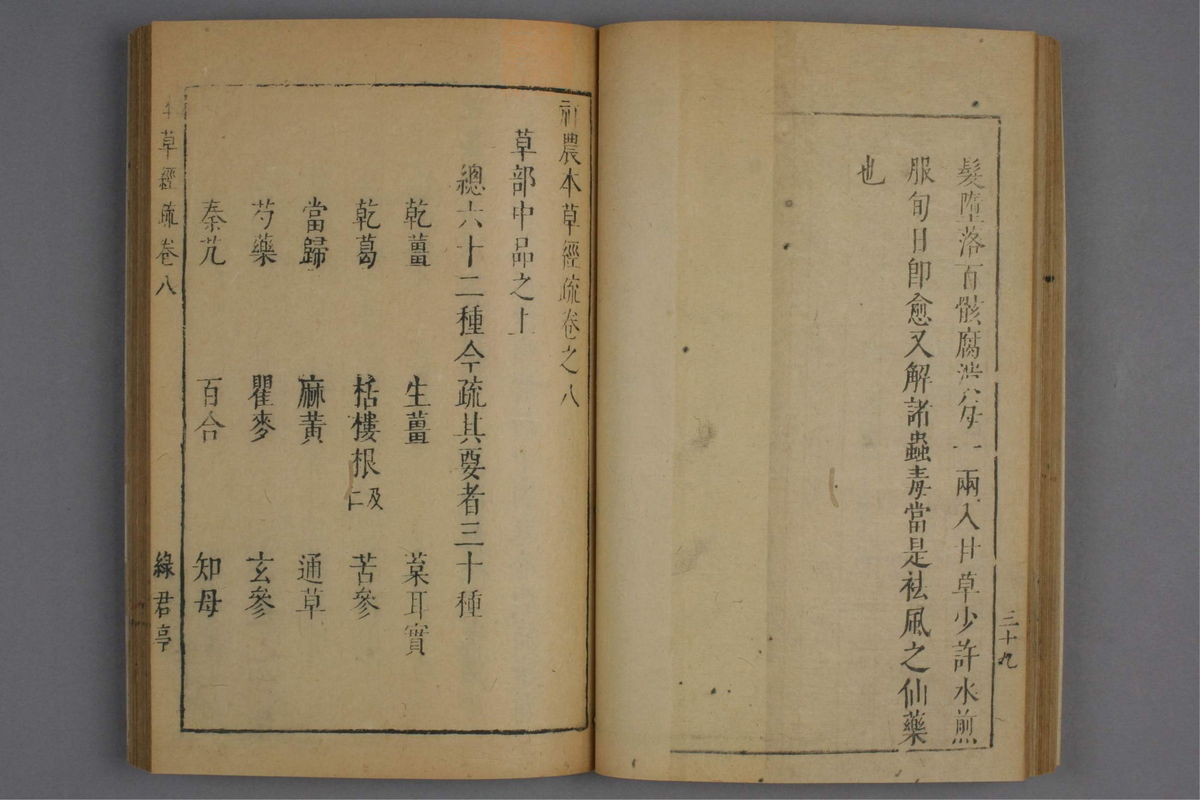 髮墮落百骸腐潰每一兩入甘草少許水煎
服旬日卽愈又解諸蟲毒當是袪風之仙藥
也
三十九
神農本草經疏卷之八
草部中品之上
總六十二種今疏其要者三十種
乾薑 生薑 葈耳實
乾葛 栝樓根及仁 苦參
當歸 麻黃 通草
芍藥 瞿麥 玄參
秦艽 百合 知母
本草經疏卷八 綠君亭